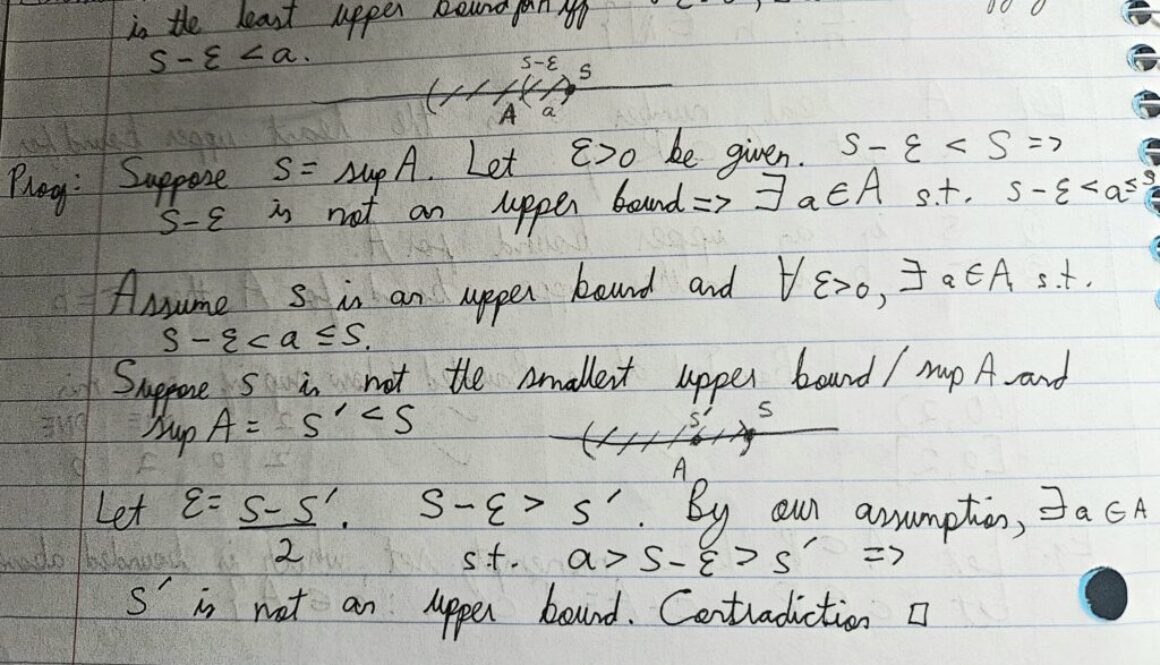 is the least upper bound for A iff
S-ε < a.
S-ε S
A a
Proof: Suppose S = sup A. Let ε>0 be given. S-ε < S =>
S-ε is not an upper bound => ∃ a ∈ A s.t. S-ε < a ≤ S
Assume S is an upper bound and ∀ ε>0, ∃ a ∈ A s.t.
S-ε < a ≤ S.
Suppose S is not the smallest upper bound / sup A and
sup A = S' < S
S' S
A
Let ε = S-S'/2. S-ε > S'. By our assumption, ∃ a ∈ A
s.t. a > S-ε > S' =>
S' is not an upper bound. Contradiction □